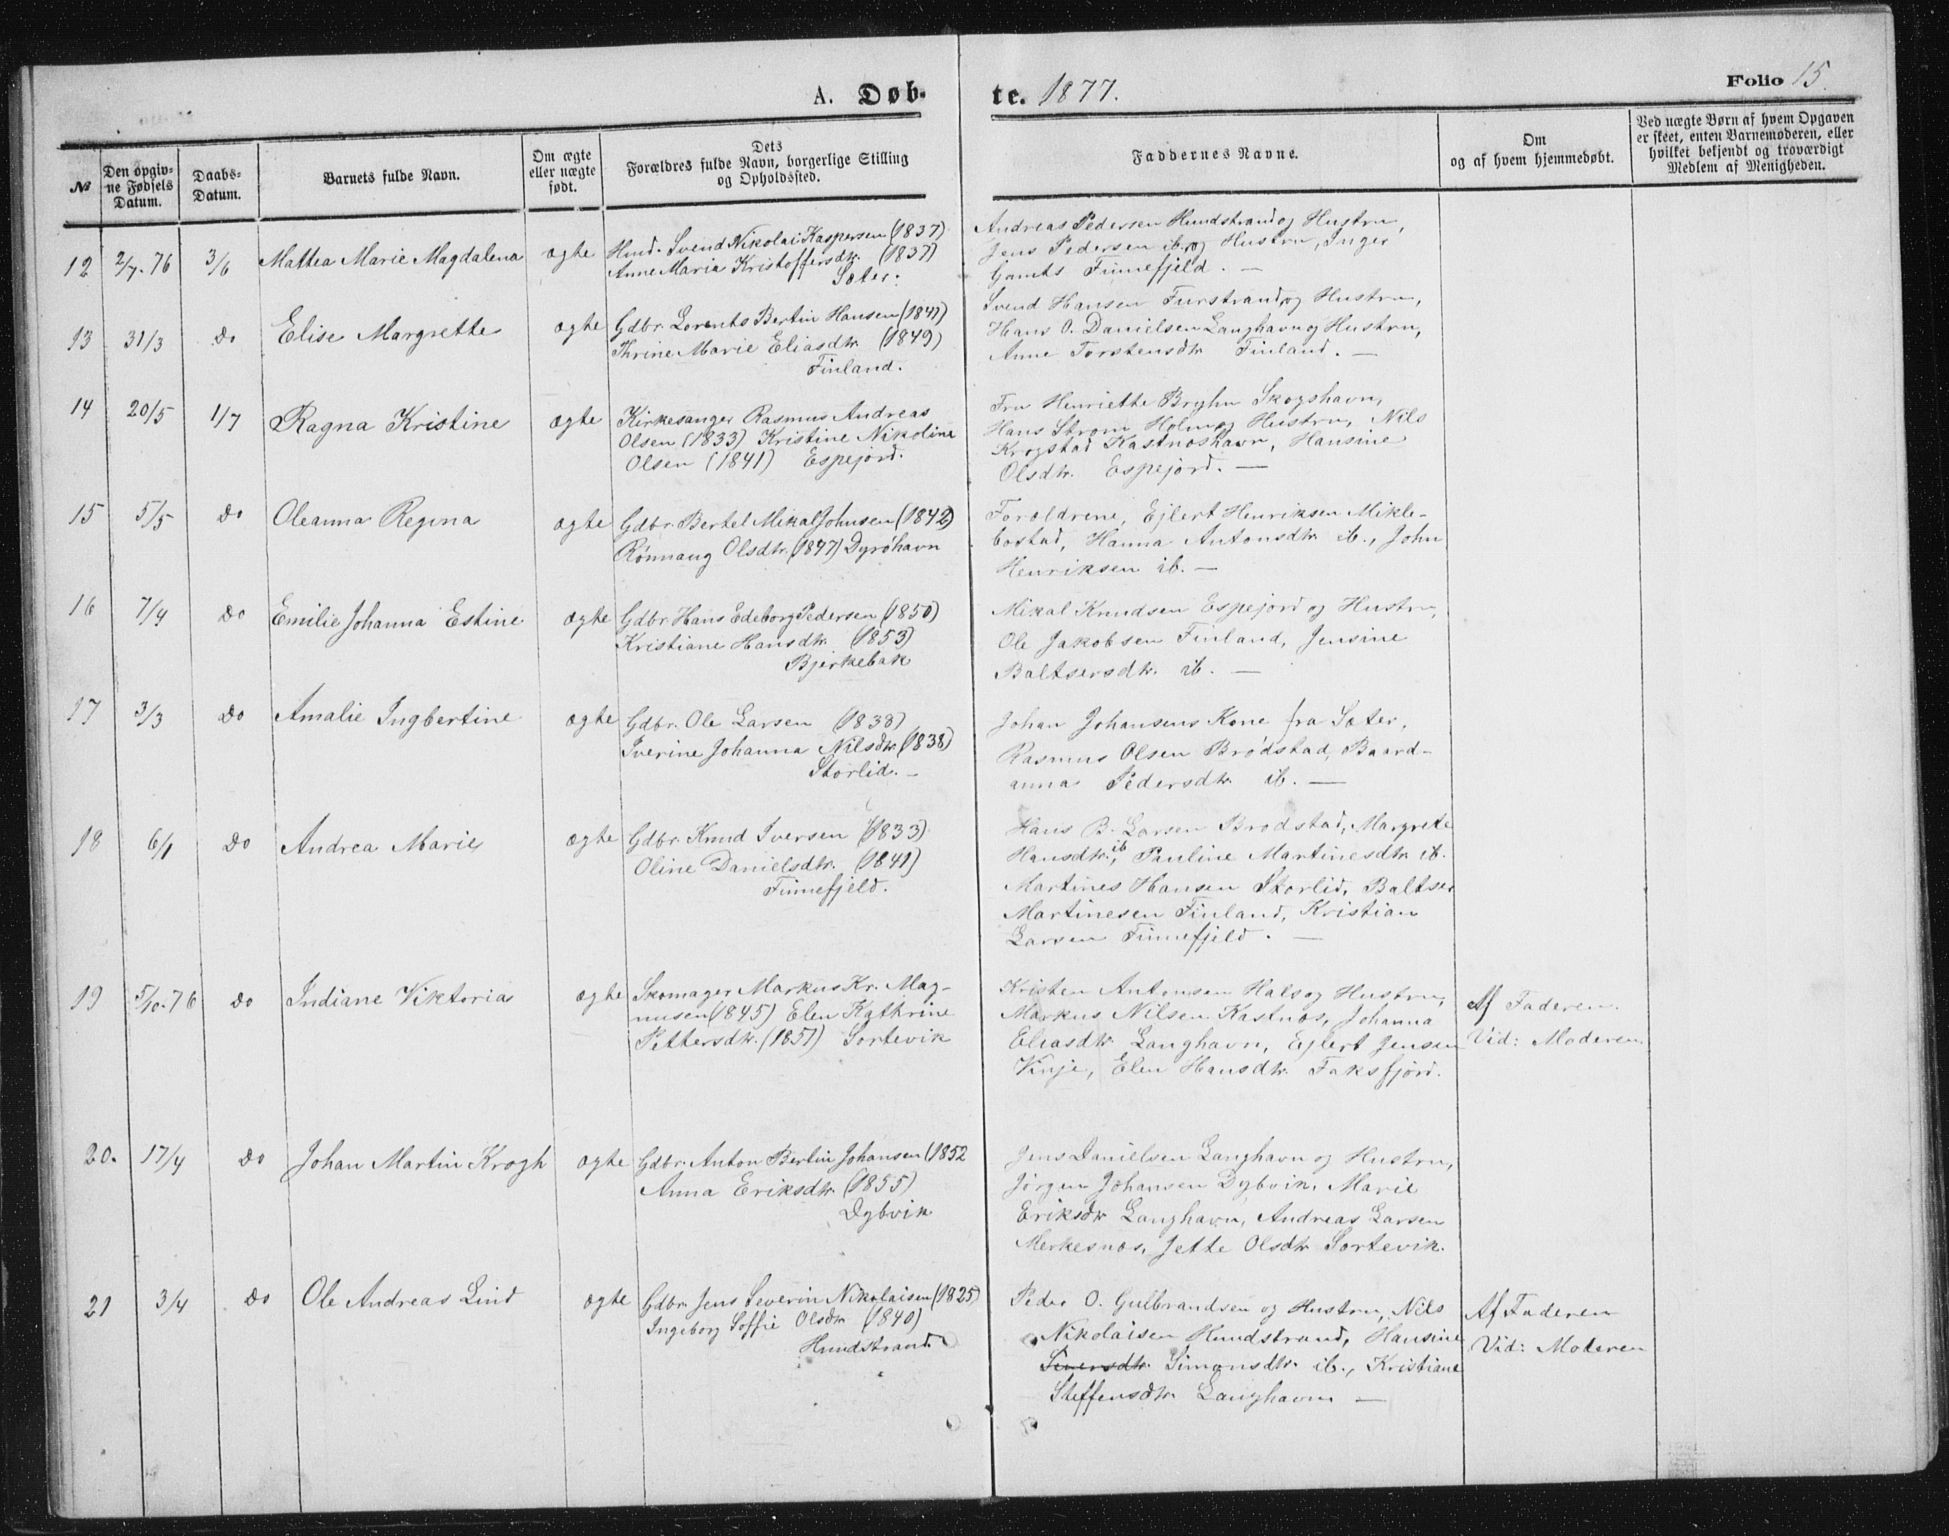 A. Døb-
te. 1877.
Folio 15.
No
Den opgiv-
ne Fødsels
Datum.
Daabs-
Datum.
Barnets fulde Navn.
Om ægte
eller uægte
født.
Dets
Forældres fulde Navn, borgerlige Stilling
og Opholdssted.
Faddernes Navne.
Om
og af hvem hjemmedøbt.
Ved uægte Børn af hvem Opgaven
er skeet, enten Barnemoderen, eller
hvilket bekjendt og troværdigt
Medlem af Menigheden.
12 2/7.76 3/6 Mattea Marie Magdalena ægte
Hmd. Svend Nikolai Kaspersen (1837)
Anne Maria Kristoffersdtr. (1837)
Sæter.
Andreas Pedersen Hundstrand og Hustru,
Jens Pedersen ib. og Hustru, Inger
Finnefjeld. —
13 31/3 do Elise Margrette ægte
Gdbr. Lorents Bertin Hansen (1847)
Thrine Marie Eliasdtr. (1849)
Finland.
Svend Hansen Furstrand og Hustru,
Hans O. Danielsen Langhavn og Hustru,
Anne Torstensdtr. Finland. —
14 20/5 1/7 Ragna Kristine ægte
Kirkesanger Rasmus Andreas
Olsen (1833) Kristine Nikoline
Olsen (1841) Espejord.
Fru Henriette Bryhn Skogshavn,
Hans Strøm Holm og Hustru, Nils
Krogstad Kastnæshavn, Hansine
Olsdtr. Espejord. —
15 5/5 do Oleanna Regina ægte
Gdbr. Bertel Mikal Johnsen (1842)
Rønnaug Olsdtr. (1847) Dyröhavn
Forældrene, Ejlert Henriksen Mikle-
bostad, Hanna Antonsdtr. ib., John
Henriksen ib. —
16 7/4 do Emilie Johanna Estine ægte
Gdbr. Hans Edeborg Pedersen (1850)
Kristiane Hansdtr. (1853)
Bjerkebak
Mikal Knudsen Espejord og Hustru,
Ole Jakobsen Finland, Jensine
Baltsersdtr. ib. —
17 3/3 do Amalie Ingbertine ægte
Gdbr. Ole Larsen (1838)
Iverine Johanna Nilsdtr. (1838)
Storlid. —
Johan Johansens Kone fra Sæter,
Rasmus Olsen Brödstad, Baard-
anna Pedersdtr. ib. —
18 6/1 do Andrea Marie ægte
Gdbr. Knud Iversen (1833)
Oline Danielsdtr. (1841)
Finnefjeld.
Hans B. Larsen Brodstad, Margrete
Hansdtr. ib, Pauline Martinesdtr. ib.
Martines Hansen Storlid, Baltser
Martinesen Finland, Kristian
Larsen Finnefjeld. —
19 5/10.76 do Indiane Viktoria ægte
Skomager Markus Kr. Mag-
nusen (1845) Elen Kathrine
Pettersdtr. (1851) Sortevik
Kristen Antonsen Hals og Hustru,
Markus Nilsen Kastnæs, Johanna
Eliasdtr. Langhavn, Ejlert Jensen
Vinje, Elen Hansdtr. Faksfjord.
Af Faderen.
Vid: Moderen
20. 17/4 do Johan Martin Krogh ægte
Gdbr. Anton Bertin Johansen (1852
Anna Eriksdtr. (1855)
Dybvik
Jens Danielsen Langhavn og Hustru,
Jörgen Johansen Dybvik, Marie
Eriksdtr Langhavn, Andreas Larsen
Merkesnæs, Jette Olsdtr. Sortevik.
21 3/4 do Ole Andreas Lind ægte
Gdbr. Jens Severin Nikolaisen (1825)
Ingeborg Soffie Olsdtr (1840)
Hundstrand
Peder O. Gulbrandsen og Hustru, Nils
Nikolaisen Hundstrand, Hansine
Simonsdtr. ib., Kristiane
Steffensdtr. Langhavn —
Af Faderen
Vid: Moderen